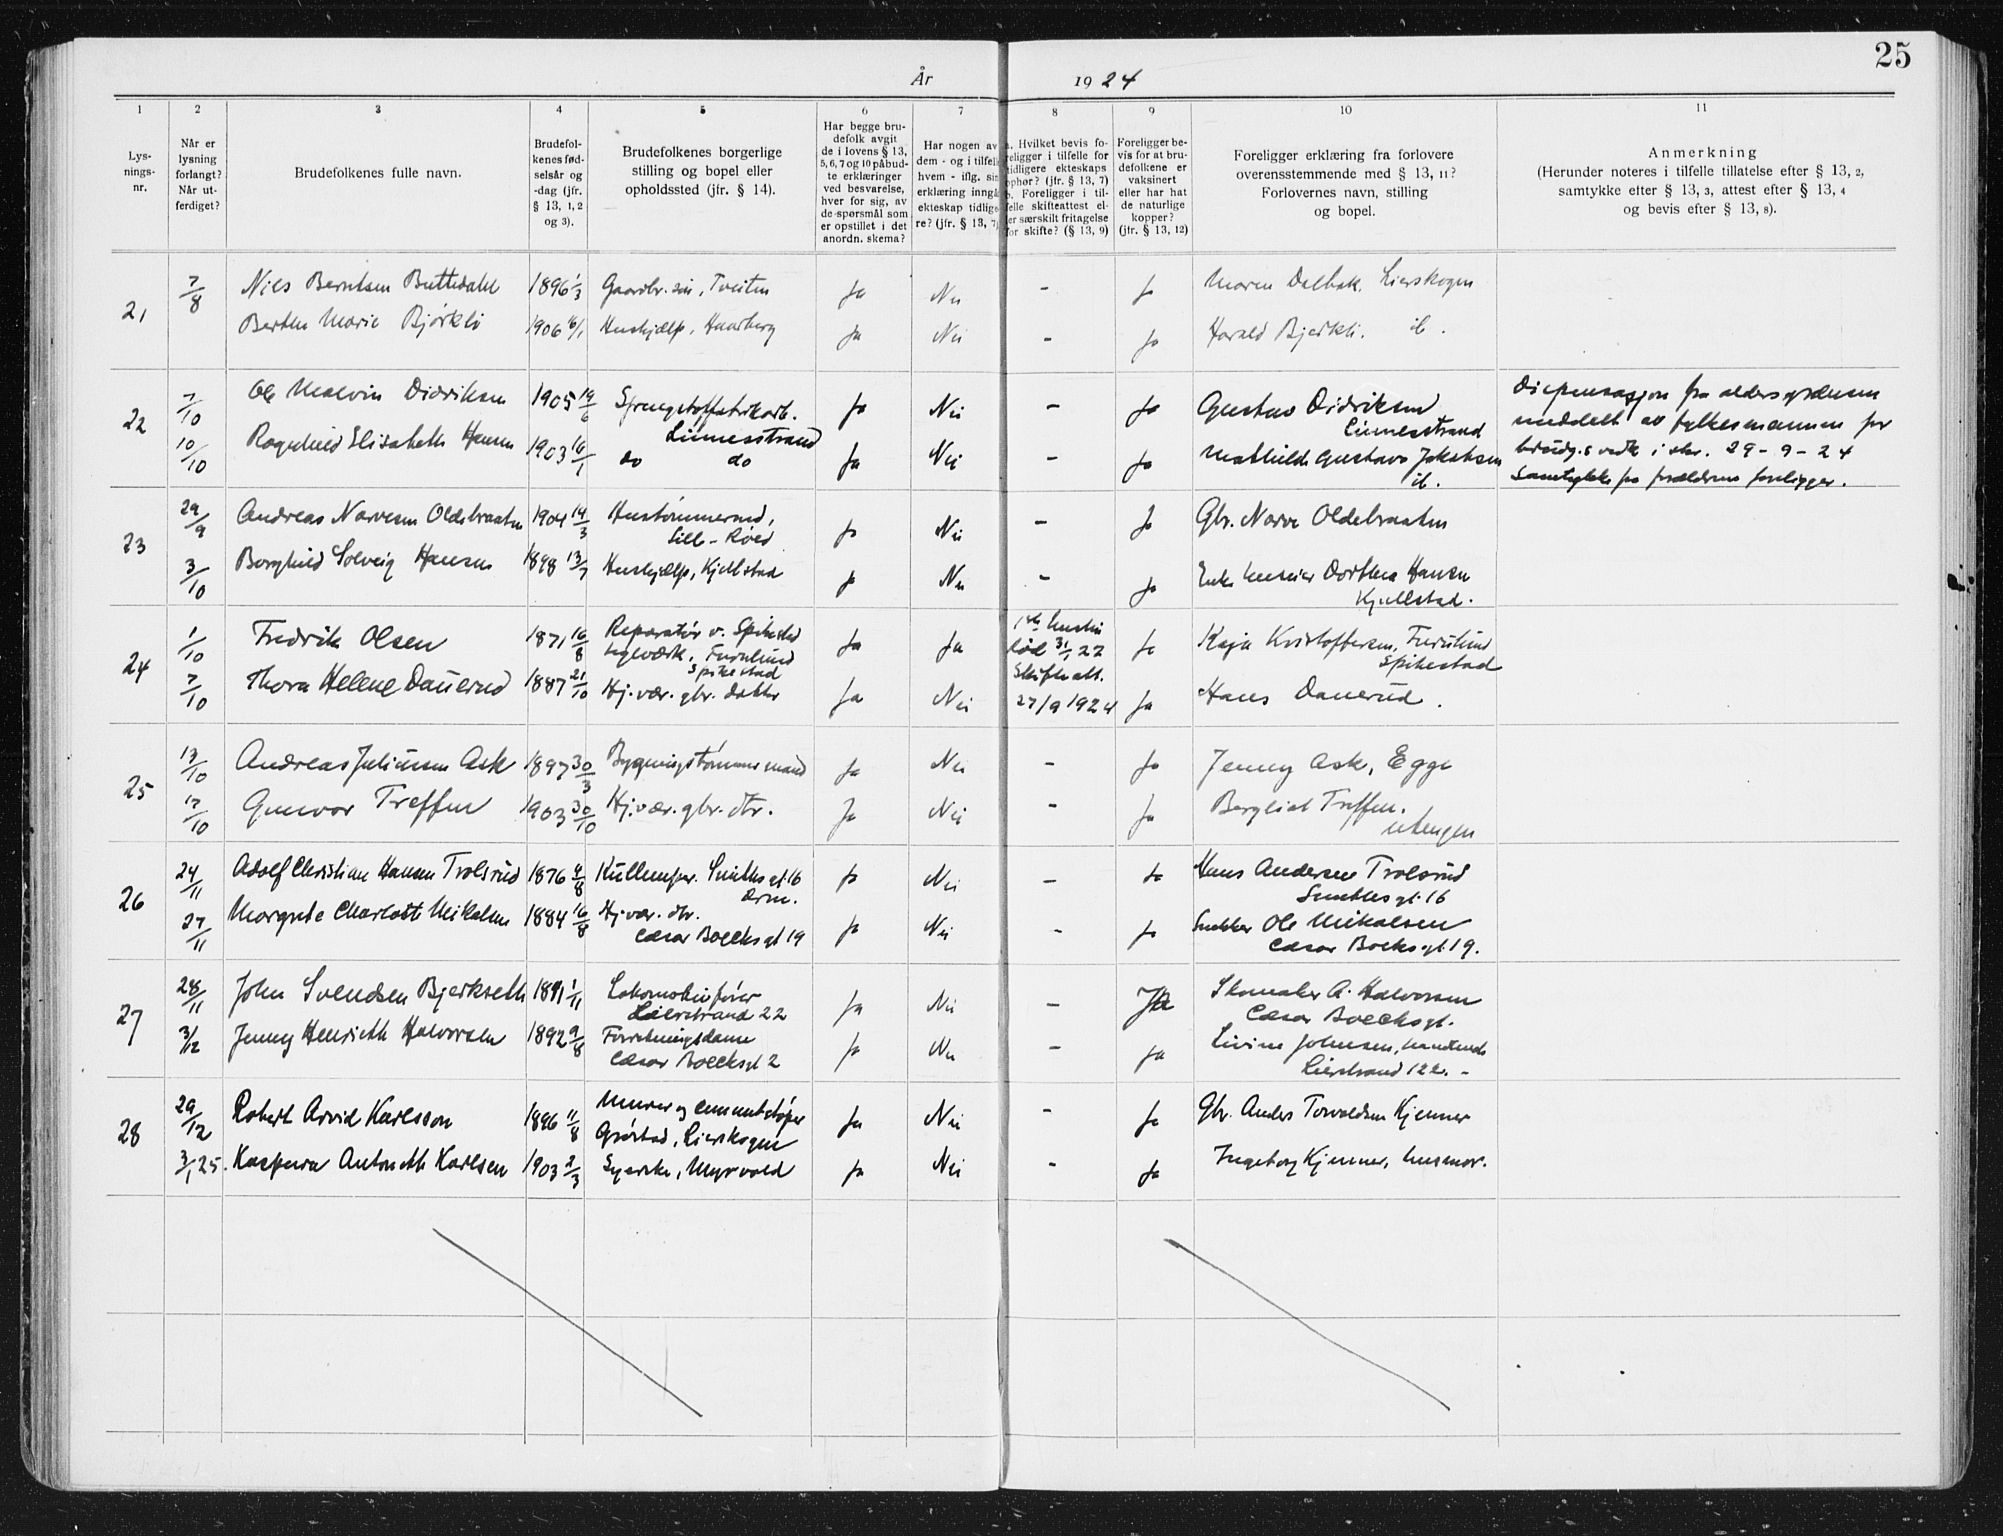 25
År 1924
1 2 3 4 5 6 7 8 9 10 11
Lys-
nings-
nr.
Når er
lysning
forlangt?
Når ut-
ferdiget?
Brudefolkenes fulle navn.
Brudefol-
kenes fød-
selsår og
-dag (jfr.
§ 13, 1, 2
og 3).
Brudefolkenes borgerlige
stilling og bopel eller
opholdssted (jfr. § 14).
Har begge bru-
defolk avgit
de i lovens § 13,
5, 6, 7 og 10 påbud-
te erklæringer
ved besvarelse,
hver for sig, av
de spørsmål som
er opstillet i det
anordn. skema?
Har nogen av
dem - og i tilfelle
hvem - iflg. sin
erklæring inngå
ekteskap tidlige
re? (jfr. § 13, 7)
a. Hvilket bevis fo-
religger i tilfelle for
tidligere ekteskaps
ophør? (jfr. § 13, 7)
b. Foreligger i til-
felle skifteattest el-
ler særskilt fritagelse
for skifte? (§ 13, 9)
Foreligger be-
vis for at bru-
defolkene er
vaksinert
eller har hat
de naturlige
kopper?
(jfr. § 13, 12)
Foreligger erklæring fra forlovere
overensstemmende med § 13, 11?
Forlovernes navn, stilling
og bopel.
Anmerkning
(Herunder noteres i tilfelle tillatelse efter § 13, 2,
samtykke efter § 13, 3, attest efter § 13, 4
og bevis efter § 13, 8).
21 7/8 Nils Berntsen Buttedahl 1896 1/3 Gaardbr. søn, Tveiten Ja Nei - Ja Maren Dalbak, Lierskogen
Berthe Marie Bjørkli 1906 16/1 Hushjælp, Haarberg Ja Nei - Ja Harald Bjerkli. ib.
22 7/10 Ole Malvin Didriksen 1905 19/6 Sprengstoffabrikarb. Ja Nei - Ja Gustav Didriksen
Linnesstrand Linnesstrand
10/10 Ragnhild Elisabeth Hansen 1903 16/1 do do Ja Nei - Ja Mathilde Gustava Jakobsen
ib.
Dispensasjon fra aldersgrænsen
meddelt av fylkesmannen for
brudg.s vedk i skr. 29-9-24
Samtykke fra forældrene foreligger.
23 29/9 Andreas Narvesen Oldebraaten 1904 14/3 Hustømmermd, Ja Nei - Ja Gbr. Narve Oldebraaten
3/10 Borghild Solveig Hansen 1898 13/7 Hushjælp, Kjellstad Ja Nei - Ja Enke Dorthea Hansen
Kjellstad.
24 1/10 Fredrik Olsen 1871 16/8 Reparatør v. Spikestad Ja Ja Ja Kaja Kristoffersen, Furulund
teglværk, Furulund
Spikestad Spikestad
død 31/1 22
Skifteatt.
27/9 1924
7/10 Thora Helene Dauerud 1887 21/10 Hj.vær. gbr. datter Ja Nei Ja Hans Dauerud.
25 13/10 Andreas Juliussen Ask 1897 30/3 Bygningstømmermand Ja Nei - Ja Jenny Ask, Egge
17/10 Gunvor Treffen 1903 30/10 Hj.vær. gbr. dtr. Ja Nei - Ja Bergliot Treffen.
Utengen
26 24/11 Adolf Christian Hansen Trolsrud 1876 4/8 Kullemper. Smithsgt. 16 Ja Nei - Ja Hans Andersen Trolsrud
Drm. Smithsgt. 16
27/11 Margrete Charlotte Mikalsen 1884 16/8 Hj.vær. dtr. Ja Nei - Ja Snekker Ole Mikalsen
Cæsar Boecksgt 19 Cæsar Boeksgt. 19.
27 28/11 John Svendsen Bjerkseth 1891 1/11 Lokomobilfører Ja Nei - Ja Skomaker A. Halvorsen
Lierstrand 22 Cæsar Boecksgt.
3/12 Jenny Henriette Halvorsen 1892 9/8 Forretningsdame Ja Nei - Ja Johnsen,
Cæsar Boecksgt 2 Lierstrand 122. -
28 29/12 Robert Arvid Karlsson 1896 11/8 Murer og cementstøper Ja Nei - Ja Gbr. Anders Torvaldsen Kjenner
Grøstad, Lierskogen
3/1 25. Kaspara Antonette Karlsen 1903 2/3 Syerske, Myrvold Ja Nei - Ja Ingeborg Kjenner, husmor.